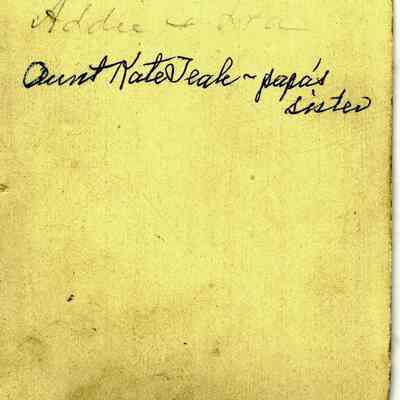 Addie & Ira
Aunt Kate Teak ~ papa's
sister